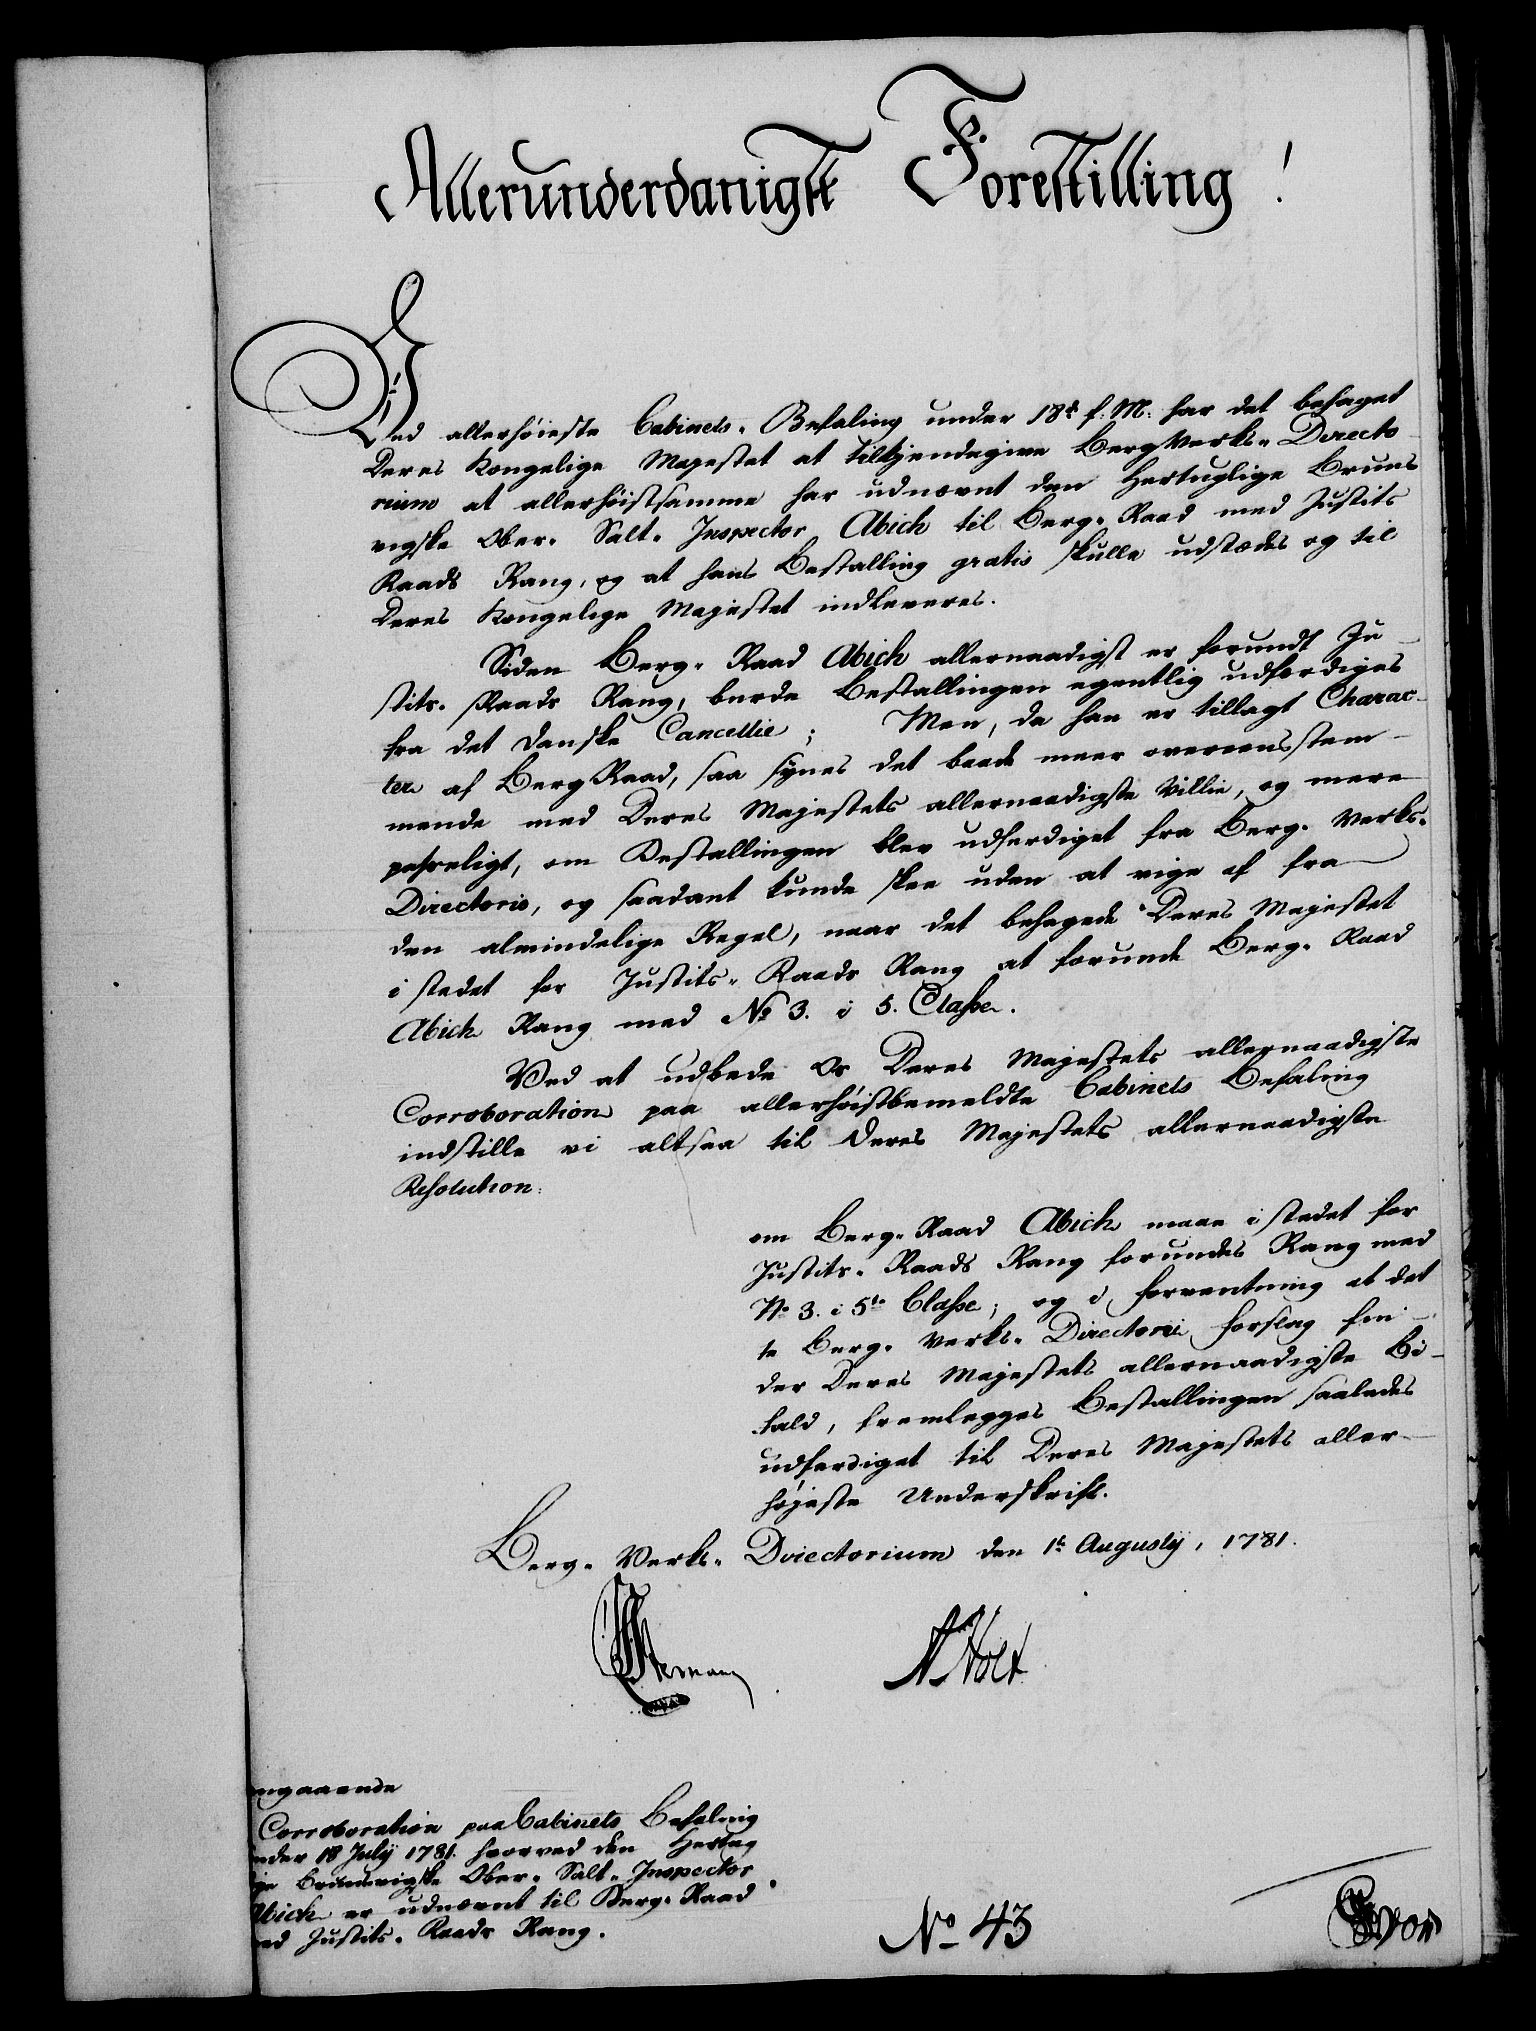 Allerunderdanigst Forestilling!
Ved allerhøieste Cabinets-Befaling under 18de f: M: har det behaget
Deres Kongelige Majestet at tilkjendegive BergVerks-Directo
rium at allerhøistsamme har udnævnt den Hertuglige Bruns
vigske Ober- Salt- Inspector Abich til Berg-Raad med Justits
Raads Rang, og at hans Bestalling gratis skulle udstædes og til
Deres Kongelige Majestet indleveres.
Siden Berg-Raad Abich allernaadigst er forundt Ju-
stits-Raads Rang, burde Bestallingen egentlig udfærdiges
fra det danske Cancellie; Men, da han er tillagt Charac-
ter af BergRaad, saa synes det baade meer overeensstem-
mende med Deres Majestets allernaadigste Villie, og mere
passeligt, om Bestallingen blev udferdiget fra Berg-Verks-
Directorio, og saadant kunde skee uden at vige af fra
den almindelige Regel, naar det behagede Deres Majestet
i stedet for Justits-Raads Rang at forunde Berg-Raad
Abich Rang med No 3. i 5. Classe.
Ved at udbede os Deres Majestets allernaadigste
Corroboration paa allerhøistbemeldte Cabinets Befaling
indstille vi altsaa til Deres Majestets allernaadigste
Resolution:
om Berg-Raad Abich maae i stedet for
Justits-Raads Rang forundes Rang med
No 3. i 5te Classe; og i forventning at det
te Berg-Verks-Directorii forslag fin-
der Deres Majestets allernaadigste Bi-
fald, fremlegges Bestallingen saaledes
udferdiget til Deres Majestets aller-
højeste Underskrift.
Berg-Verks-Directorium den 1te Augustij, 1781.
AHolt
ngaaende
Corroboration paa Cabinets Befaling
nder 18 Julij 1781. hvorved den Hertug
ige Brunsvigske Ober-Salt-Inspector
Abich er udnævnt til Berg-Raad
ed Justits-Raads Rang.
No 43